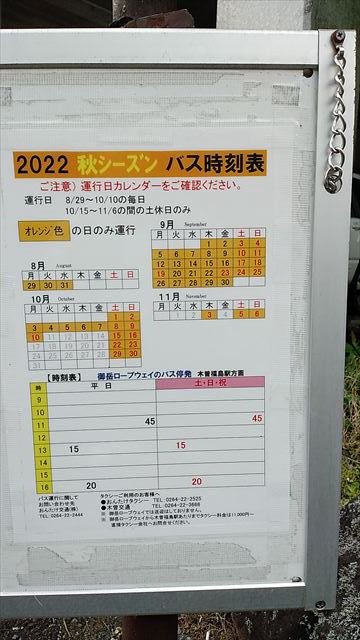 2022 秋シーズン バス時刻表
ご注意）運行日カレンダーをご確認ください。
運行日 8/29～10/10の毎日
10/15～11/6の間の土休日のみ
オレンジ色 の日のみ運行
8月 August
月 火 水 木 金 土 日
29 30 31
9月 September
月 火 水 木 金 土 日
1 2 3 4
5 6 7 8 9 10 11
12 13 14 15 16 17 18
19 20 21 22 23 24 25
26 27 28 29 30
10月 October
月 火 水 木 金 土 日
1 2
3 4 5 6 7 8 9
10 11 12 13 14 15 16
17 18 19 20 21 22 23
24 25 26 27 28 29 30
31
11月 November
月 火 水 木 金 土 日
1 2 3 4 5 6
【時刻表】 御岳ロープウェイのバス停発 木曽福島駅方面
時 平日 土・日・祝
9
10
11 45 45
12
13 15 15
14
15
16 20 20
バス運行に関して
お問い合わせ先
おんたけ交通(株)
TEL:0264-22-2444
タクシーご利用のお客様へ
●おんたけタクシー TEL:0264-22-2525
●木曽交通 TEL:0264-22-3666
※ 御岳ロープウェイでは送迎はしておりません。
※ 御岳ロープウェイから木曽福島駅あたりまでタクシー料金は11,000円～
直接タクシー会社へお問合せください。